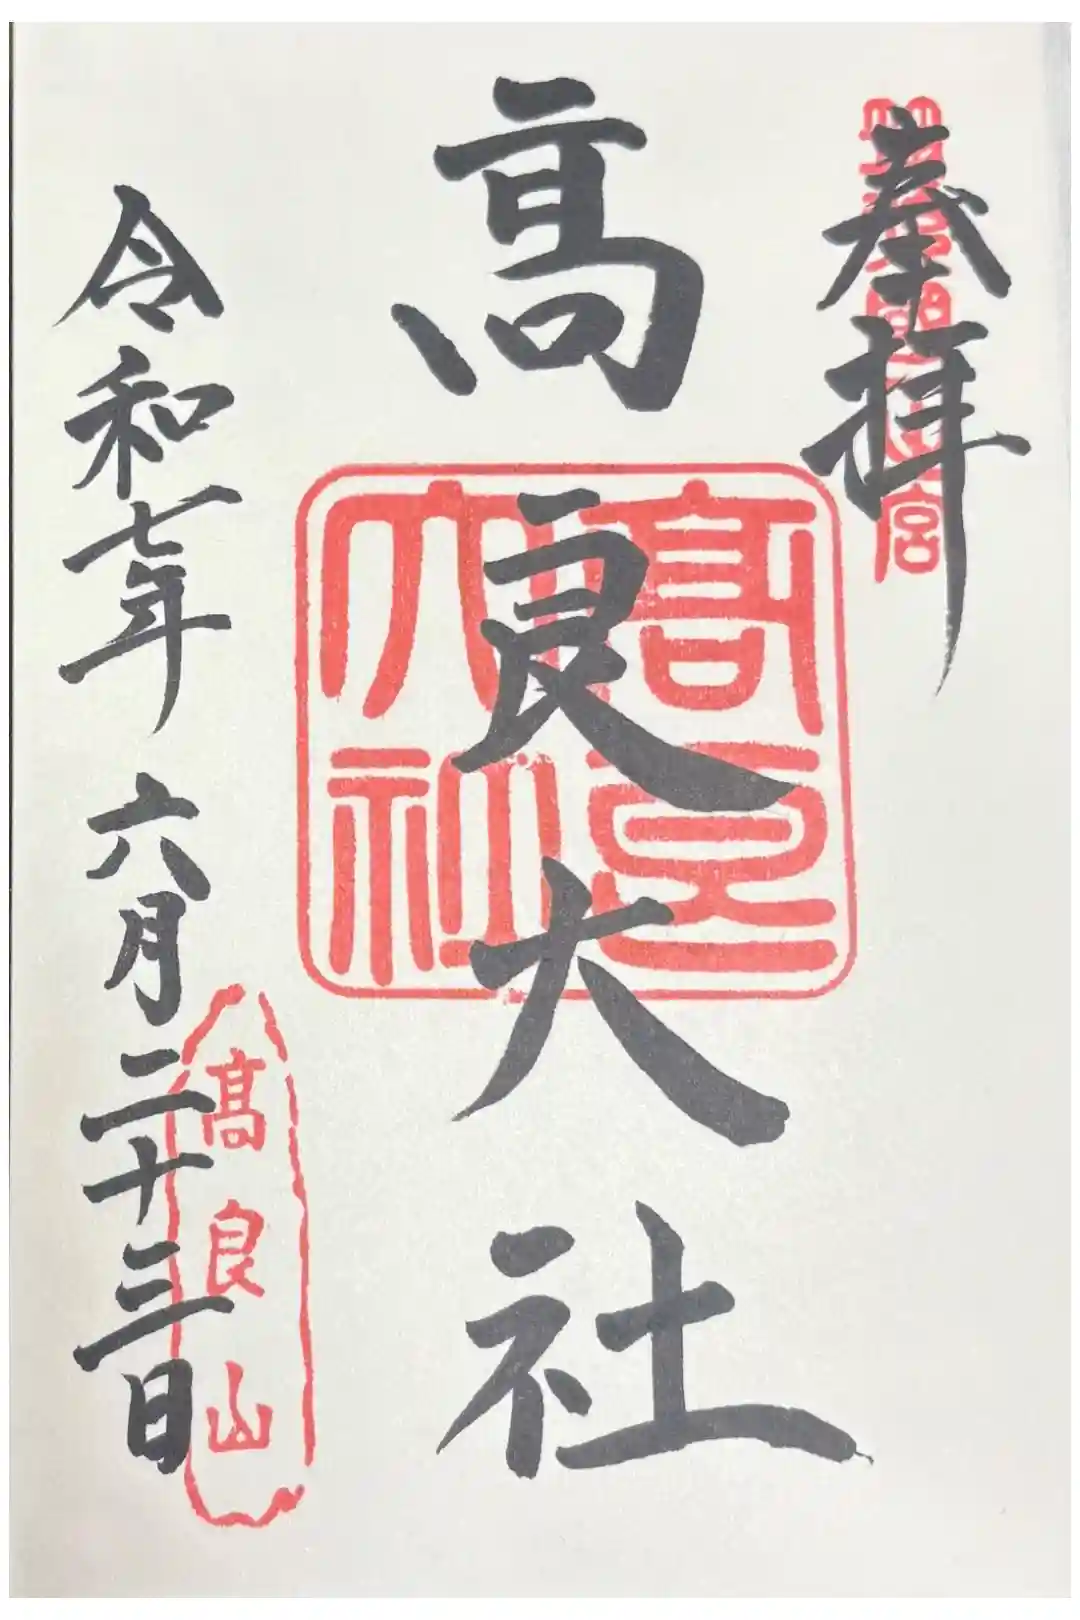 奉拝
髙良大社
髙良大社
令和七年六月二十三日
髙良山